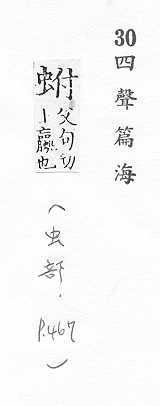 30四聲篇海
蚹
父句切
卜蠃也
(虫部.P.467)